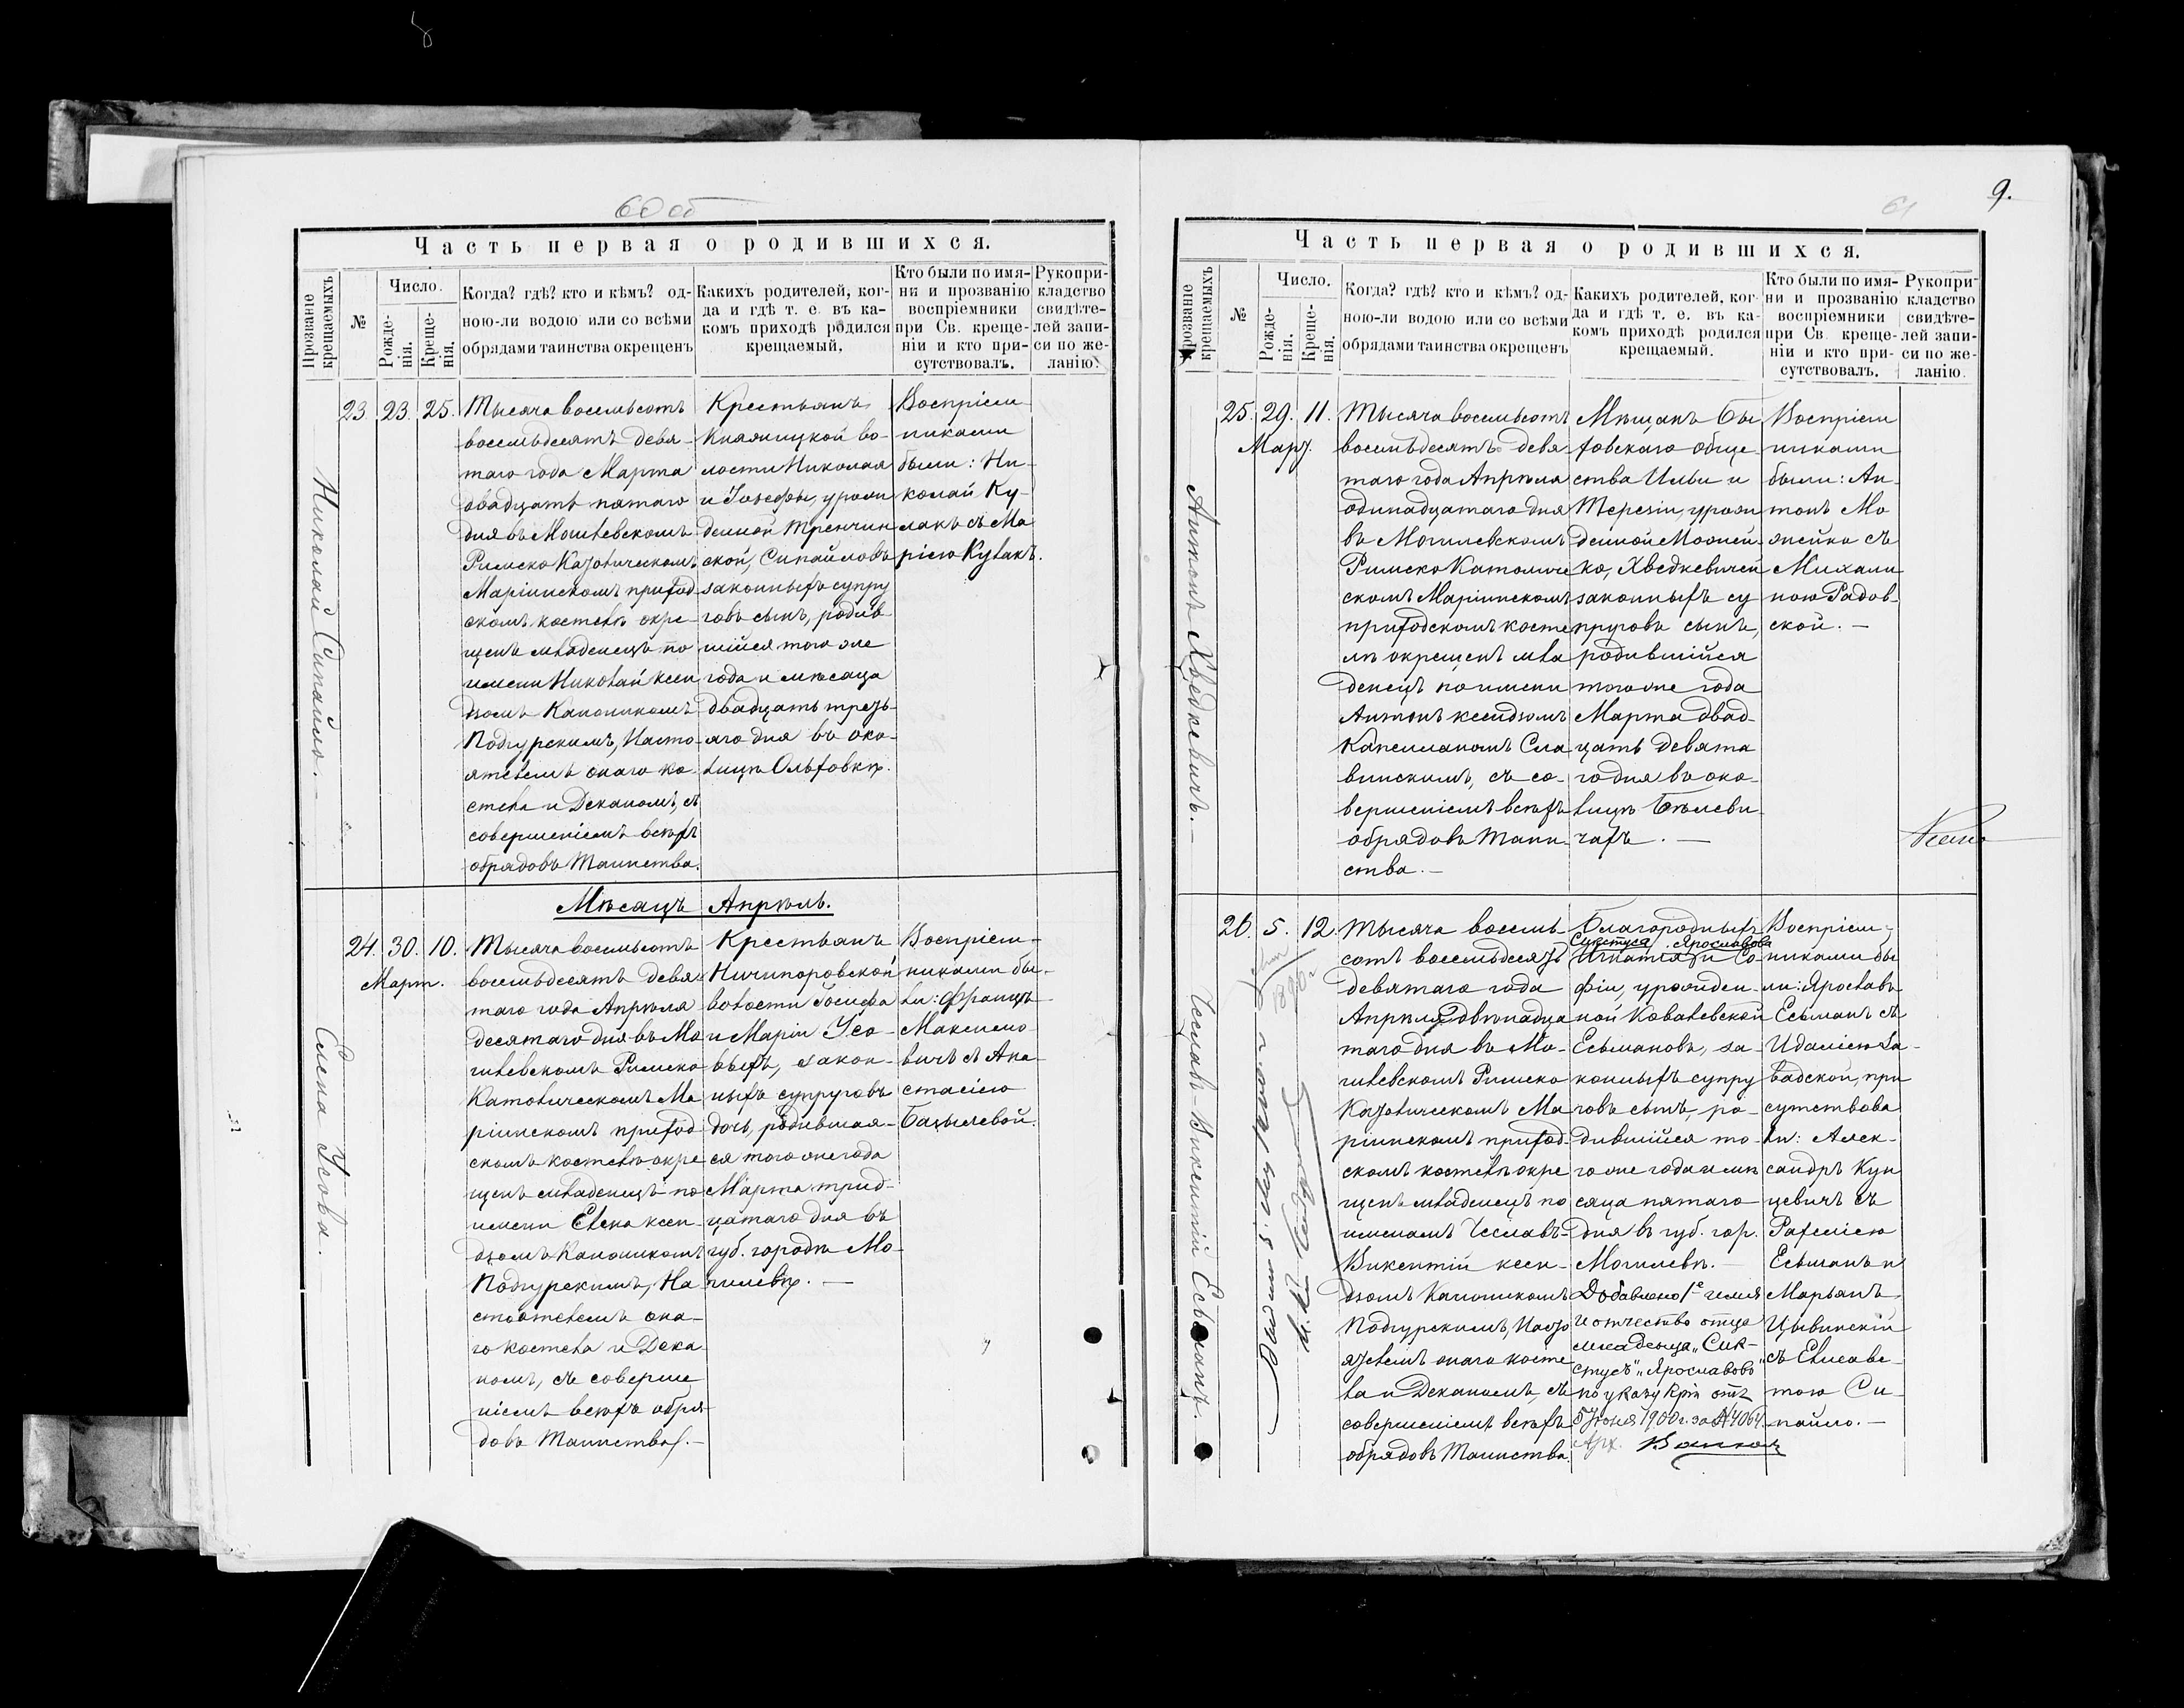 60 об
Часть первая о родившихся.
Прозваніе крещаемыхъ
№
Число.
Рожде-
нія.
Креще-
нія.
Когда? гдѣ? кто и кѣмъ? од-
ною-ли водою или со всѣми
обрядами таинства окрещенъ
Какихъ родителей, ког-
да и гдѣ т. е. въ ка-
комъ приходѣ родился
крещаемый.
Кто были по имя-
ни и прозванію
воспріемники
при Св. креще-
ніи и кто при-
сутствовалъ.
Рукопри-
кладство
свидѣте-
лей запи-
си по же-
ланію.
Николай Сипайло.—
23. 23. 25.
Тысяча восемьсотъ
восемьдесятъ девя-
таго года Марта
двадцать пятаго
дня въ Могилевскомъ
Римско Католическомъ
Маріинскомъ приход
скомъ костелѣ окре-
щенъ младенецъ по
имени Николай ксен
дзомъ Каноникомъ
Подгурскимъ, Насто-
ятелемъ онаго ко-
стела и Деканомъ, съ
совершеніемъ всѣхъ
обрядовъ Таинства.
Крестьянъ
Княжицкой во-
лости Николая
и Іозефы, урож
денной Тренчин
ской, Сипайловъ
законныхъ супру
говъ сынъ, родив-
шійся того же
года и мѣсяца
двадцать треть-
яго дня въ око-
лицѣ Ольховкѣ.
Воспріем-
никами
были: Ни-
колай Ку-
лакъ съ Ма
ріею Кулакъ.
Мѣсяцъ Апрѣль.
Елена Усова.
24. 30. 10.
Март.
Тысяча восемьсотъ
восемьдесятъ девя-
таго года Апрѣля
десятаго дня въ Мо
гилевскомъ Римско
Католическомъ Ма
ріинскомъ приход
скомъ костелѣ окре
щенъ младенецъ по
имени Елена ксен-
дзомъ Каноникомъ
Подгурскимъ, На
стоятелемъ она-
го костела и Дека
номъ, съ соверше
ніемъ всѣхъ обря-
довъ Таинства.—
Крестьянъ
Ничипоровской
волости Іосифа
и Маріи Усо-
выхъ, закон-
ныхъ супруговъ
дочь, родившая-
ся того же года
Марта трид-
цатаго дня въ
губ. городѣ Мо-
гилевѣ.—
Воспріем-
никами бы-
ли: Францъ
Максимо-
вичъ съ Ана-
стасіею
Базылевой.
9.
61
Часть первая о родившихся.
Прозваніе крещаемыхъ
№
Число.
Рожде-
нія.
Креще-
нія.
Когда? гдѣ? кто и кѣмъ? од-
ною-ли водою или со всѣми
обрядами таинства окрещенъ
Какихъ родителей, ког-
да и гдѣ т. е. въ ка-
комъ приходѣ родился
крещаемый.
Кто были по имя-
ни и прозванію
воспріемники
при Св. креще-
ніи и кто при-
сутствовалъ.
Рукопри-
кладство
свидѣте-
лей запи-
си по же-
ланію.
Антонъ Хведкевичъ.—
25. 29. 11.
Март.
Тысяча восемьсотъ
восемьдесятъ девя
таго года Апрѣля
одинадцатаго дня
въ Могилевскомъ
Римско Католиче
скомъ Маріинскомъ
приходскомъ косте
лѣ окрещенъ мла
денецъ по имени
Антонъ ксендзомъ
Капелланомъ Сла
винскимъ, съ со-
вершеніемъ всѣхъ
обрядовъ Таин-
ства.—
Мѣщанъ Бы
ховскаго обще-
ства Ильи и
Терезіи, урож
деннойМожей-
ко, Хведкевичей
законныхъ су
пруговъ сынъ,
родившійся
того же года
Марта двад-
цать девята
го дня въ око-
лицѣ Бѣлеви-
чахъ.—
Воспріем
никами
были: Ан-
тонъ Мо
жейко съ
Михали
ною Радов-
ской.—
Чеславъ-Викентій Есьманъ.
26. 5. 12.
Тысяча восемь-
сотъ восемьдесятъ
девятаго года
Апрѣля двѣнадца
таго дня въ Мо-
гилевскомъ Римско
Католическомъ Ма
ріинскомъ приход-
скомъ костелѣ окре
щенъ младенецъ по
именамъ Чеславъ-
Викентій ксен-
дзомъ Каноникомъ
Подгурскимъ, Насто
ятелемъ онаго косте
ла и Деканомъ, съ
совершеніемъ всѣхъ
обрядовъ Таинства.
Благородныхъ
Сикстуса Ярославова
Игнатія и Со-
фіи, урожден-
ной Ковалевской
Есьмановъ, за-
конныхъ супру
говъ сынъ, ро-
дившійся то-
го же года и мѣ
сяца пятаго
дня въ губ. гор.
Могилевѣ.—
Добавлено 1е имя
и отчество отца
младенца „Сик-
стусъ" „Ярославовъ"
по указу Крія отъ
5 Іюня 1900 г. за №4064.
Воспріем-
никами бы
ли: Ярославъ
Есьманъ съ
Идаліею За-
вадской, при
сутствова
ли: Алек-
сандръ Кун
цевичъ съ
Рафеліею
Есьманъ и
Марьянъ
Цывинскій
съ Елисаве-
тою Си-
пайло.—